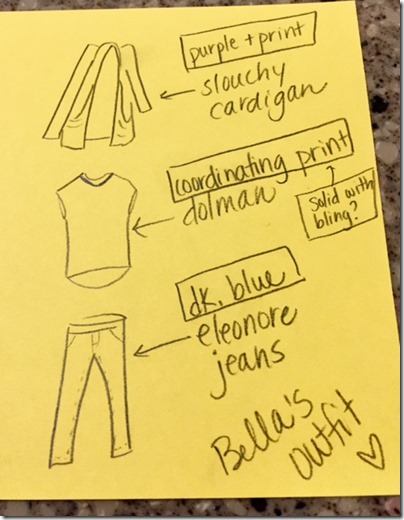 purple + print
slouchy
cardigan
coordinating print
dolman
solid with
bling?
dk. blue
eleonore
jeans
Bella's
outfit